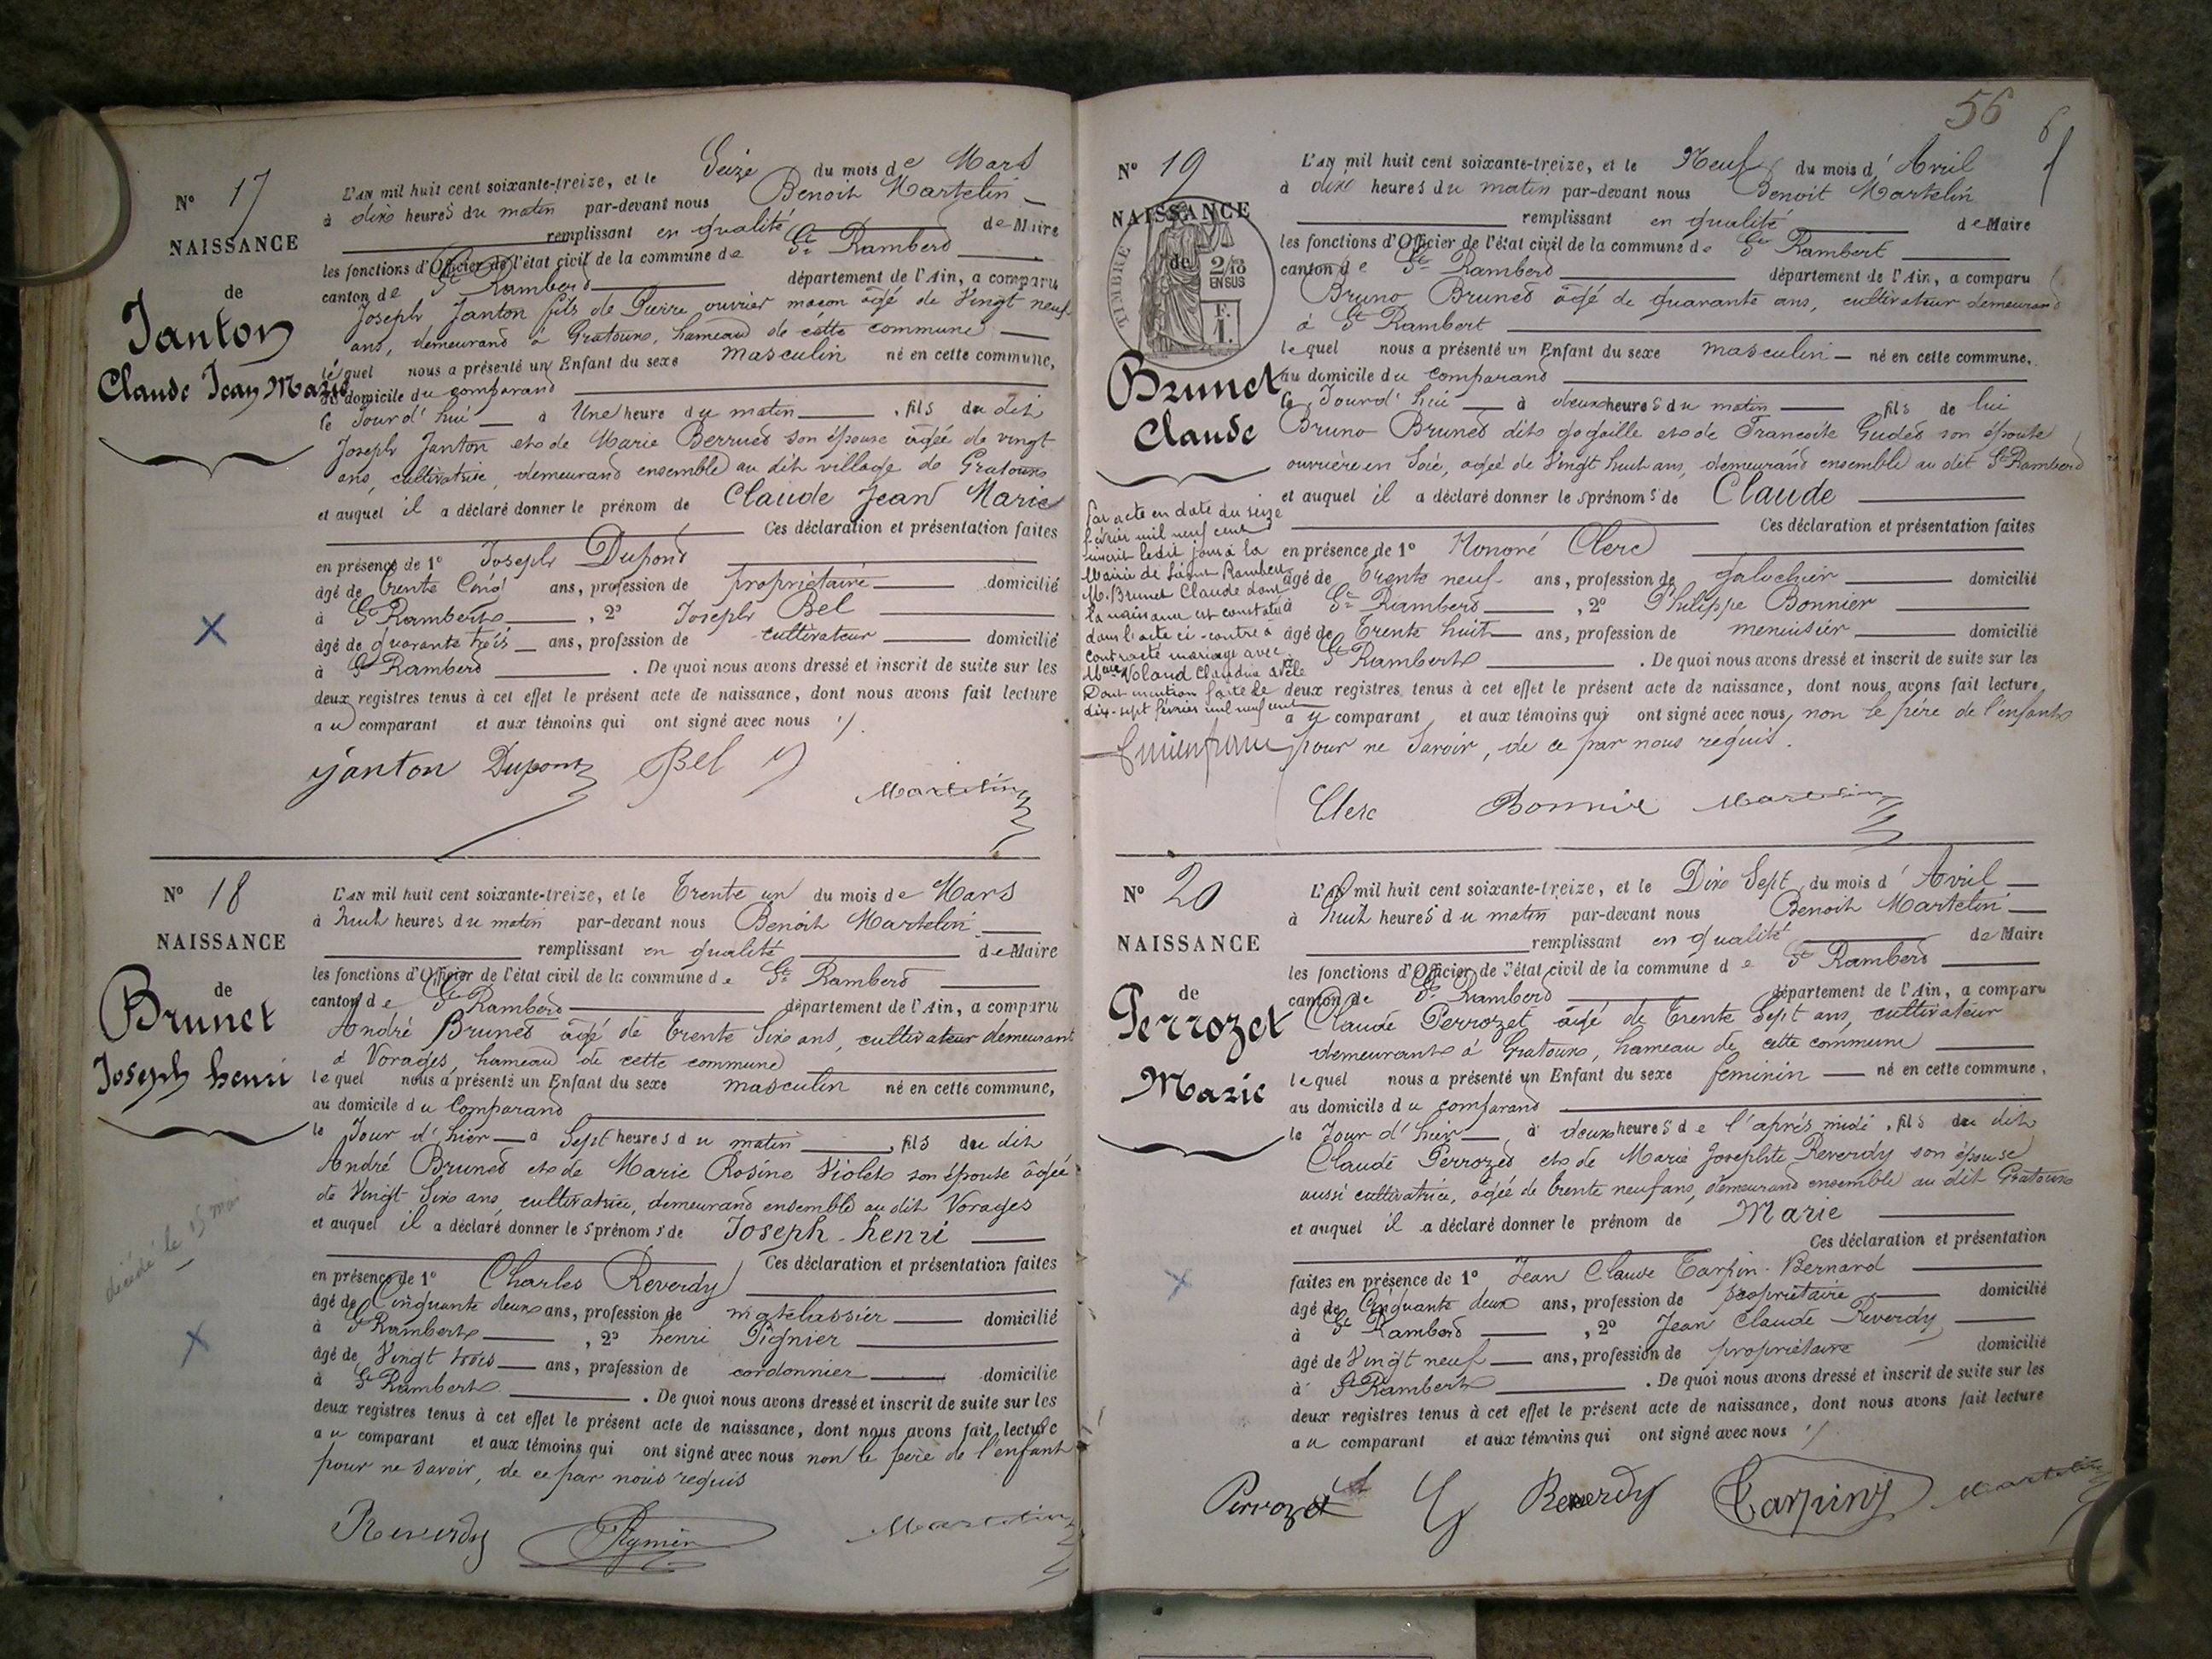 N° 17
NAISSANCE
de
Janton
Claude Jean Marie
L'AN mil huit cent soixante-treize, et le Seize du mois de Mars
à dix heures du matin par-devant nous Benoit Martelin
remplissant en qualité de Maire
les fonctions d'Officier de l'état civil de la commune de St Rambert
canton de St Rambert département de l'Ain, a comparu
Joseph Janton fils de Pierre ouvrier maçon âgé de Vingt neuf
ans, demeurant à Gratoux, hameau de cette commune
lequel nous a présenté un Enfant du sexe masculin né en cette commune,
au domicile du comparant
le Jour d'hui à Une heure du matin, fils du dit
Joseph Janton et de Marie Berruet son épouse âgée de vingt
ans, cultivatrice, demeurant ensemble au dit village de Gratoux
et auquel il a déclaré donner le prénom de Claude Jean Marie
Ces déclaration et présentation faites
en présence de 1° Joseph Dupont
âgé de trente cinq ans, profession de propriétaire domicilié
à St Rambert, 2° Joseph Bel
âgé de quarante trois ans, profession de cultivateur domicilié
à St Rambert. De quoi nous avons dressé et inscrit de suite sur les
deux registres tenus à cet effet le présent acte de naissance, dont nous avons fait lecture
au comparant et aux témoins qui ont signé avec nous
Janton Dupont Bel Martelin
N° 18
NAISSANCE
de
Brunet
Joseph henri
décédé le 15 mai
L'AN mil huit cent soixante-treize, et le Trente un du mois de Mars
à huit heures du matin par-devant nous Benoit Martelin
remplissant en qualité de Maire
les fonctions d'Officier de l'état civil de la commune de St Rambert
canton de St Rambert département de l'Ain, a comparu
André Brunet âgé de trente six ans, cultivateur demeurant
à Vorages, hameau de cette commune
lequel nous a présenté un Enfant du sexe masculin né en cette commune,
au domicile du Comparant
le Jour d'hier à Sept heures du matin, fils du dit
André Brunet et de Marie Rosine Violet son épouse âgée
de Vingt Six ans, cultivatrice, demeurant ensemble au dit Vorages
et auquel il a déclaré donner les prénoms de Joseph-henri
Ces déclaration et présentation faites
en présence de 1° Charles Reverdy
âgé de Cinquante deux ans, profession de matelassier domicilié
à St Rambert, 2° henri Pignier
âgé de Vingt trois ans, profession de cordonnier domicilié
à St Rambert. De quoi nous avons dressé et inscrit de suite sur les
deux registres tenus à cet effet le présent acte de naissance, dont nous avons fait lecture
au comparant et aux témoins qui ont signé avec nous non le père de l'enfant
pour ne savoir, de ce par nous requis
Reverdy Martelin
56
N° 19
NAISSANCE
de
TIMBRE
2/10
EN SUS
F.
1.
Brunet
Claude
Par acte en date du seize
février mil neuf cent
inscrit ledit jour à la
Mairie de Saint Rambert
M. Brunet Claude dont
la naissance est constatée
dans l'acte ci-contre à
contracté mariage avec
Voland Claudine
Dont mention faite le
dix-sept février mil neuf cent
L'AN mil huit cent soixante-treize, et le Neuf du mois d'Avril
à dix heures du matin par-devant nous Benoit Martelin
remplissant en qualité de Maire
les fonctions d'Officier de l'état civil de la commune de St Rambert
canton de St Rambert département de l'Ain, a comparu
Bruno Brunet âgé de quarante ans, cultivateur demeurant
à St Rambert
lequel nous a présenté un Enfant du sexe masculin né en cette commune,
au domicile du comparant
le Jour d'hui à deux heures du matin fils de lui
Bruno Brunet dit gogaille et de Françoise Gudet son épouse
ouvrière en soie, agée de Vingt huit ans, demeurant ensemble au dit St Rambert
et auquel il a déclaré donner les prénoms de Claude
Ces déclaration et présentation faites
en présence de 1° Honoré Clerc
âgé de trente neuf ans, profession de galochier domicilié
à St Rambert, 2° Philippe Bonnier
âgé de trente huit ans, profession de menuisier domicilié
à St Rambert. De quoi nous avons dressé et inscrit de suite sur les
deux registres tenus à cet effet le présent acte de naissance, dont nous avons fait lecture
au comparant, et aux témoins qui ont signé avec nous, non le père de l'enfant
pour ne savoir, de ce par nous requis.
Clerc Bonnie Martelin
N° 20
NAISSANCE
de
Perrozet
Marie
L'AN mil huit cent soixante-treize, et le Dix Sept du mois d'Avril
à huit heures du matin par-devant nous Benoit Martelin
remplissant en qualité de Maire
les fonctions d'Officier de l'état civil de la commune de St Rambert
canton de St Rambert département de l'Ain, a comparu
Claude Perrozet âgé de trente Sept ans, cultivateur
demeurant à Gratoux, hameau de cette commune
lequel nous a présenté un Enfant du sexe feminin né en cette commune,
au domicile du comparant
le Jour d'hier à deux heures de l'après midi, fils du dit
Claude Perrozet et de Marie Josephte Reverdy son épouse
aussi cultivatrice, agée de trente neuf ans, demeurant ensemble au dit Gratoux
et auquel il a déclaré donner le prénom de Marie
Ces déclaration et présentation
faites en présence de 1° Jean Claude Tarpin-Bernard
âgé de Cinquante deux ans, profession de propriétaire domicilié
à St Rambert, 2° Jean Claude Reverdy
âgé de Vingt neuf ans, profession de propriétaire domicilié
à St Rambert. De quoi nous avons dressé et inscrit de suite sur les
deux registres tenus à cet effet le présent acte de naissance, dont nous avons fait lecture
au comparant et aux témoins qui ont signé avec nous
Perrozet Reverdy Tarpin Martelin